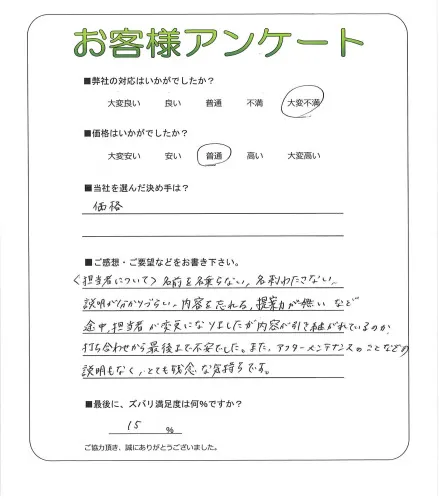 お客様アンケート
■弊社の対応はいかがでしたか？
大変良い　良い　普通　不満　大変不満
■価格はいかがでしたか？
大変安い　安い　普通　高い　大変高い
■当社を選んだ決め手は？
価格
■ご感想・ご要望などをお書き下さい。
〈担当者について〉名前を名乗らない、名刺わたさない、
説明が分かりづらい、内容を忘れる、提案力が無い など
途中、担当者が変更になりましたが内容が引き継がれているのか
打ち合わせから最後まで不安でした。また、アフターメンテナンスのことなどの
説明もなく、とても残念な気持ちです。
■最後に、ズバリ満足度は何%ですか？
15 %
ご協力頂き、誠にありがとうございました。